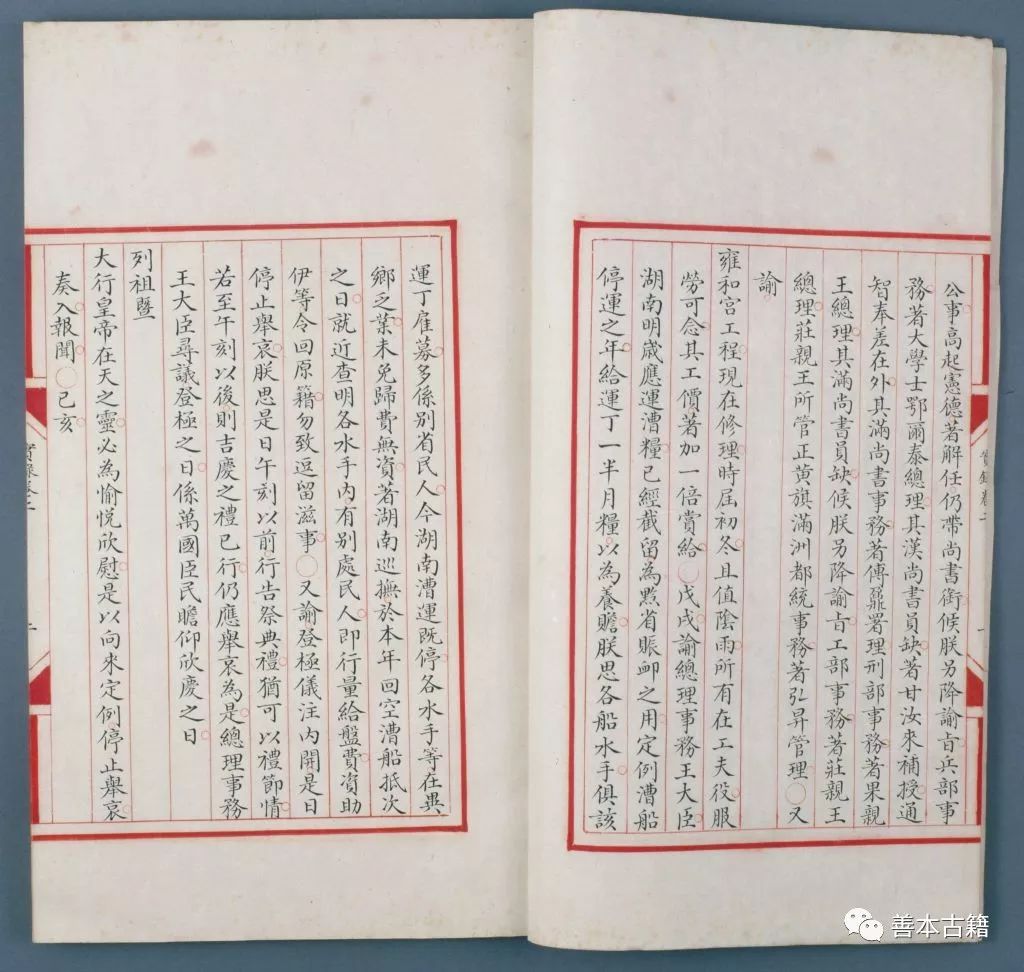 公事高起憲德著解任仍帶尚書銜候朕另降諭旨兵部事
務著大學士鄂爾泰總理其漢尚書員缺著甘汝來補授通
智奉差在外其滿尚書事務著傅鼐署理刑部事務著果親
王總理其滿尚書員缺候朕另降諭旨工部事務著莊親王
總理莊親王所管正黃旗滿洲都統事務著弘昇管理〇又
諭
雍和宮工程現在修理時屆初冬且值陰雨所有在工夫役服
勞可念其工價著加一倍賞給〇戊戌諭總理事務王大臣
湖南明歲應運漕糧已經截留為黔省賑卹之用定例漕船
停運之年給運丁一半月糧以為養贍朕思各船水手俱該
實錄卷二
運丁雇募多係別省民人今湖南漕運既停各水手等在異
鄉乏業未免歸費無資著湖南巡撫於本年回空漕船抵次
之日就近查明各水手內有別處民人即行量給盤費資助
伊等令回原籍勿致逗留滋事〇又諭登極儀注內開是日
停止舉哀朕思是日午刻以前行告祭典禮猶可以禮節情
若至午刻以後則吉慶之禮已行仍應舉哀為是總理事務
王大臣尋議登極之日係萬國臣民瞻仰欣慶之日
列祖暨
大行皇帝在天之靈必為愉悅欣慰是以向來定例停止舉哀
奏入報聞〇己亥
實錄卷二
善本古籍